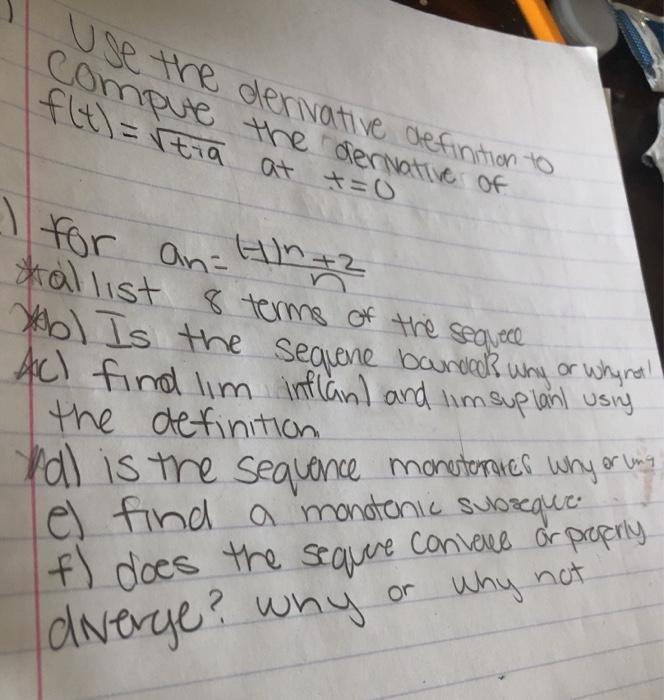 Use the derivative definition to
compute the derivative of
f(t) = √t+9 at t=0
) for an = (-1)n+2 / n
*a) list 8 terms of the sequece
*b) Is the sequene bounded? why or why not!
*c) find lim inf(an) and lim sup(an) using
the definition
*d) is the sequence monotonic? why or
e) find a monotonic
f) does the or properly
diverge? why or why not